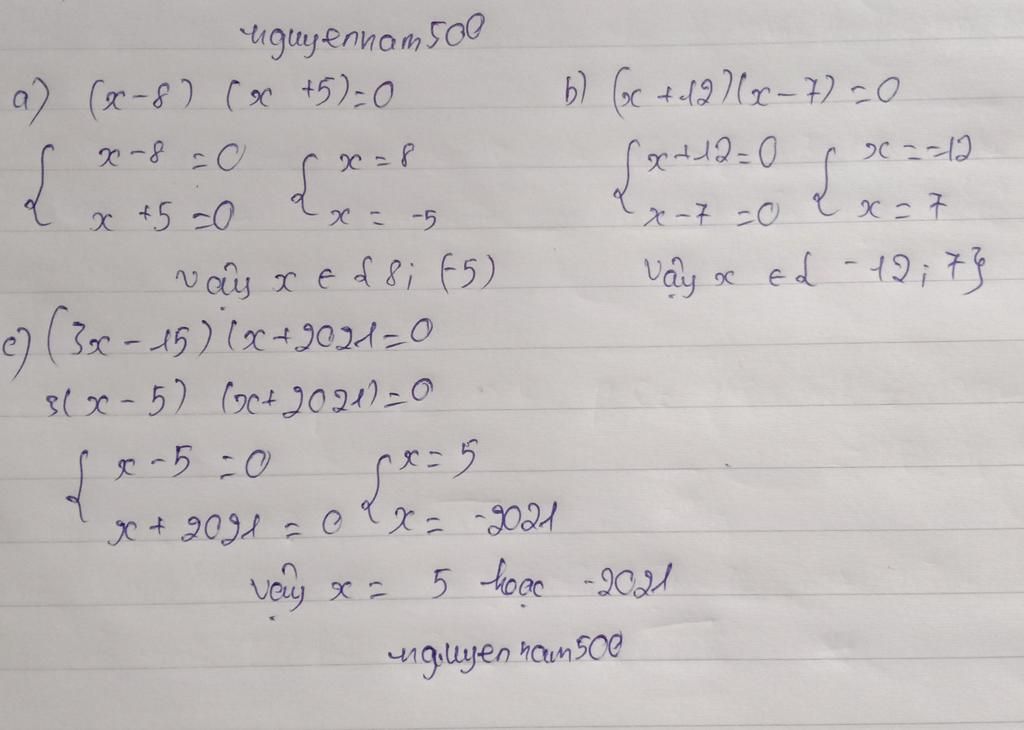 nguyennam500
a) (x-8) (x +5)=0
{ x-8 =0 { x = 8
x +5 =0 x = -5
vậy x ∈ { 8; (-5)
b) (x +12)(x-7) =0
{ x+12=0 { x = -12
x-7 =0 x = 7
vậy x ∈ { -12; 7}
c) (3x-15) (x+2021=0
3(x-5) (x+2021)=0
{ x-5 =0 { x= 5
x+ 2021 = 0 x = -2021
vậy x = 5 hoặc -2021
nguyennam500